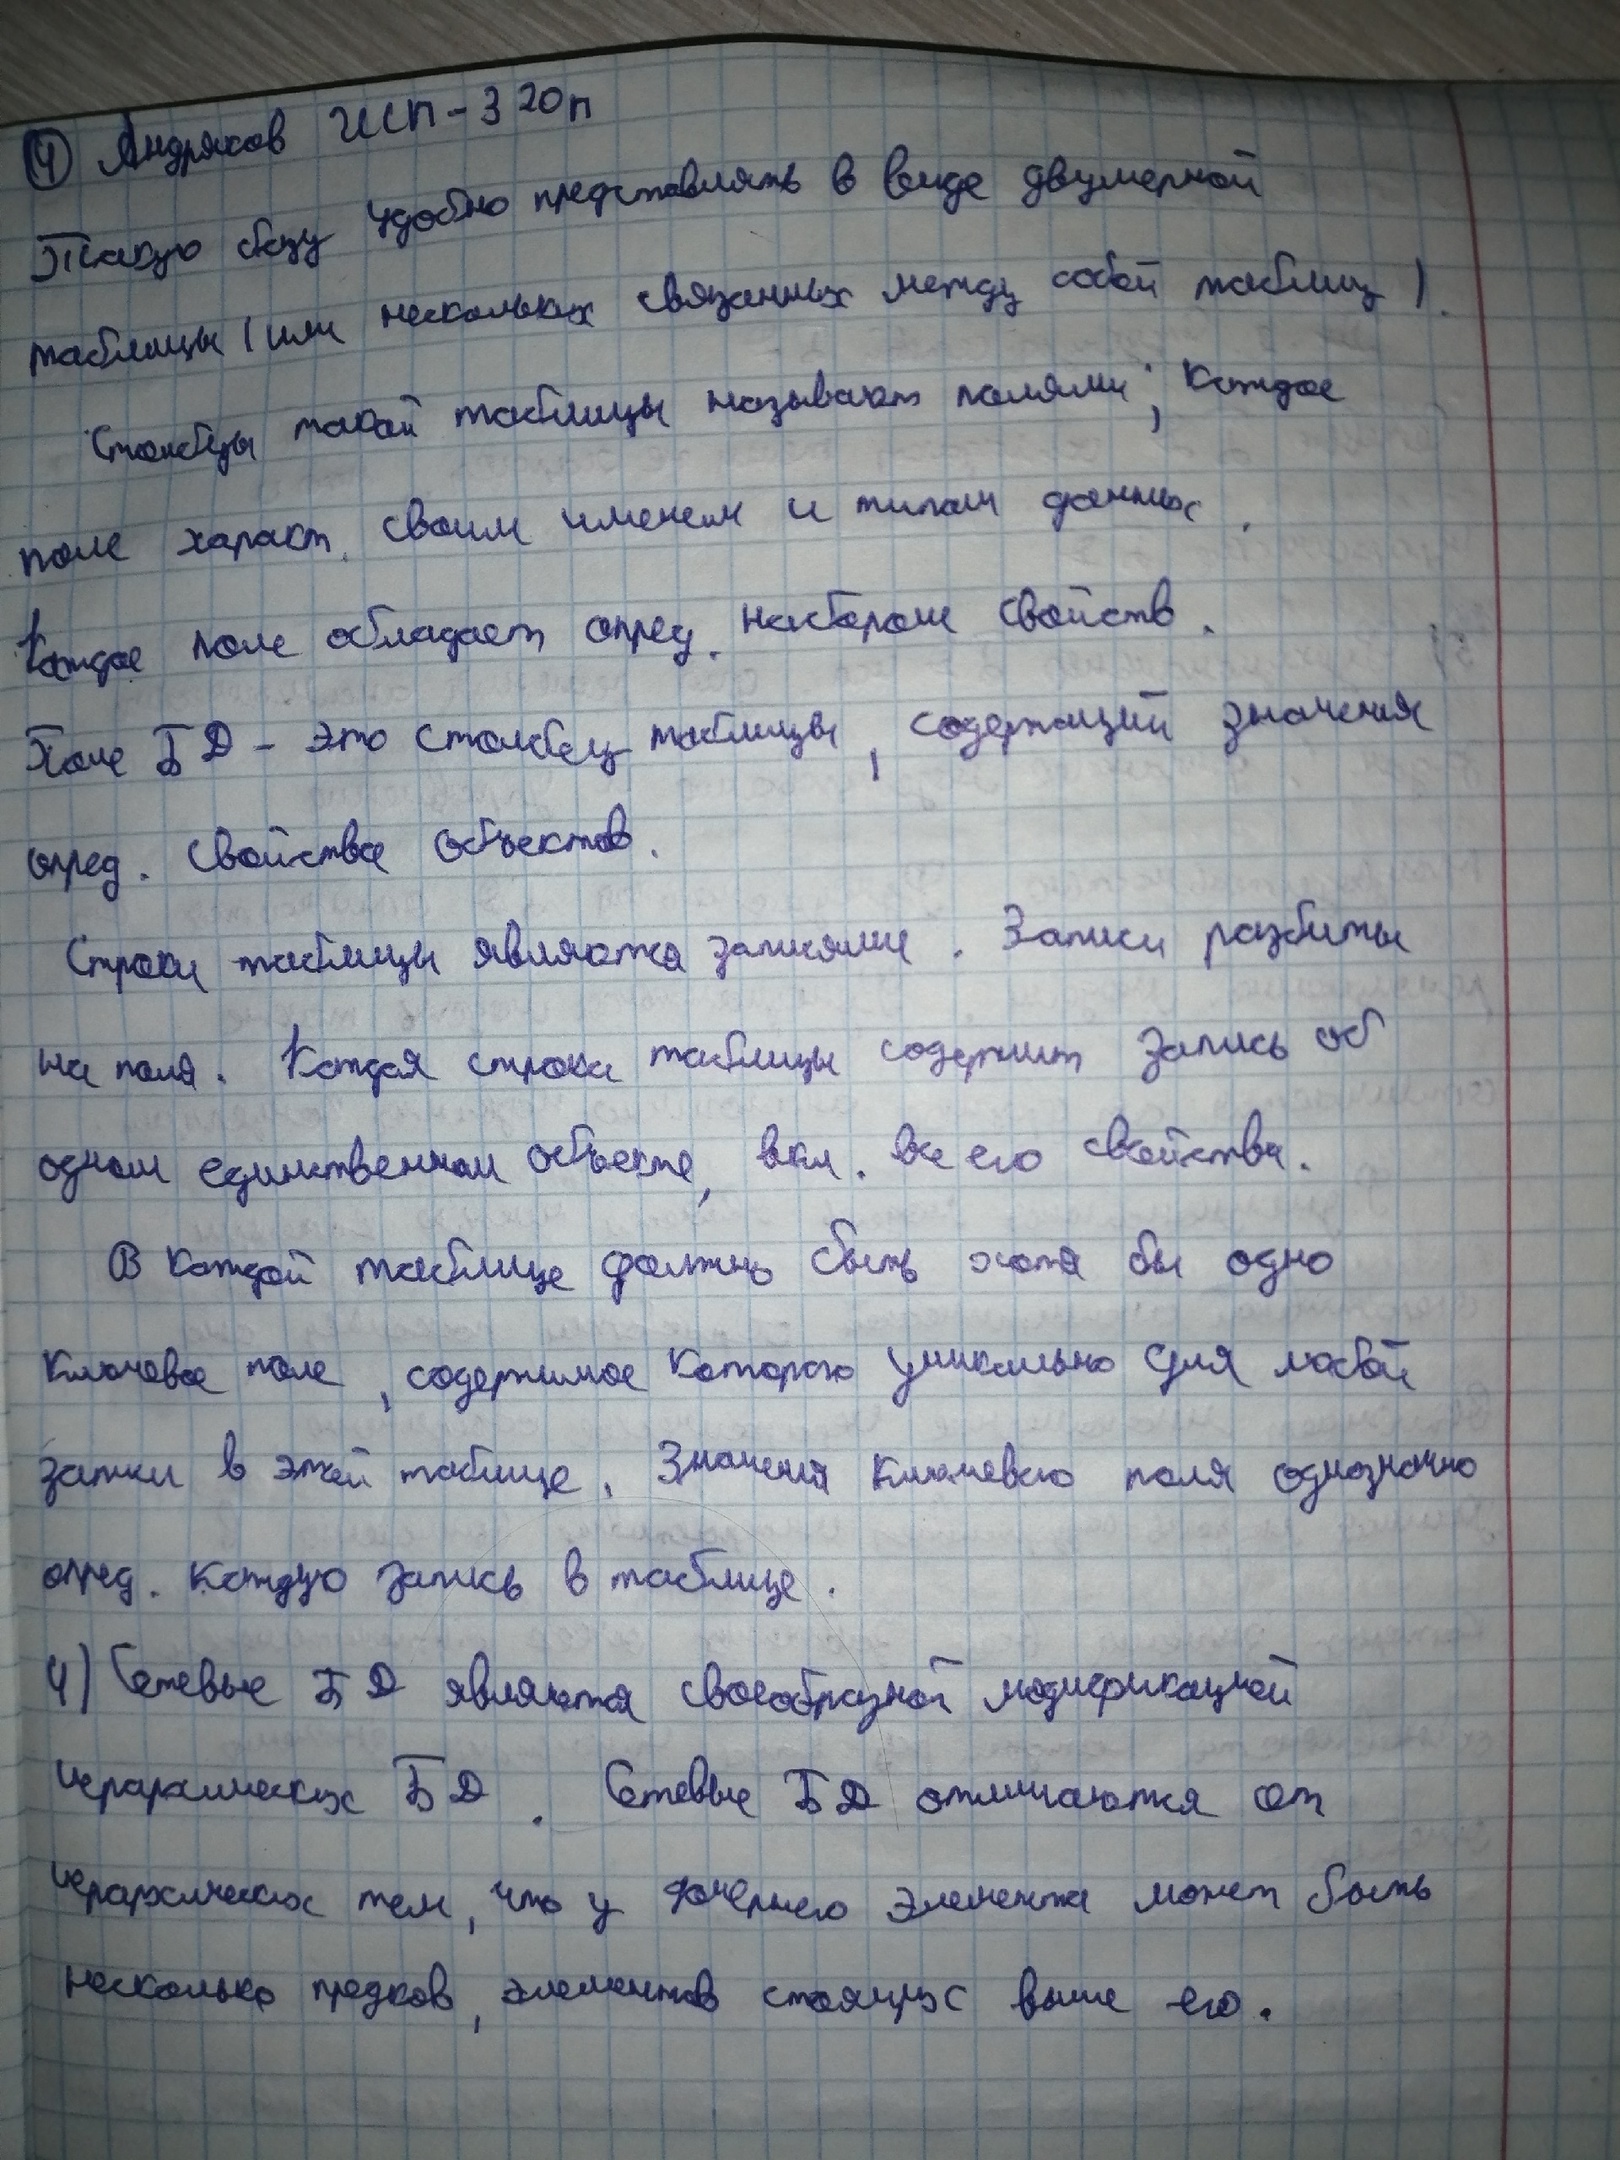 ④ Андряков ИСП-320п
Такую базу удобно представлять в виде двумерной
таблицы (или нескольких связанных между собой таблиц).
Столбцы такой таблицы называют полями; Каждое
поле характ. своим именем и типом данных.
Каждое поле обладает опред. набором свойств.
Поле БД - это столбец таблицы, содержащий значения
опред. свойства объектов.
Строки таблицы являются записями. Записи разбиты
на поля. Каждая строка таблицы содержит запись об
одном единственном объекте, вкл. все его свойства.
В каждой таблице должно быть хотя бы одно
ключевое поле, содержимое которого уникально для любой
записи в этой таблице. Значения ключевого поля однозначно
опред. каждую запись в таблице.
4) Сетевые БД являются своеобразной модификацией
иерархических БД. Сетевые БД отличаются от
иерархических тем, что у дочернего элемента может быть
несколько предков, элементов стоящих выше его.